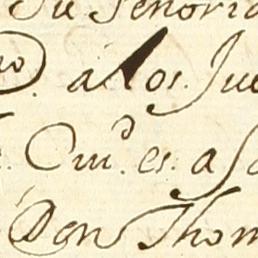 Su Señoria
no. a los Jue
Ciud. es. a So
Don Thom